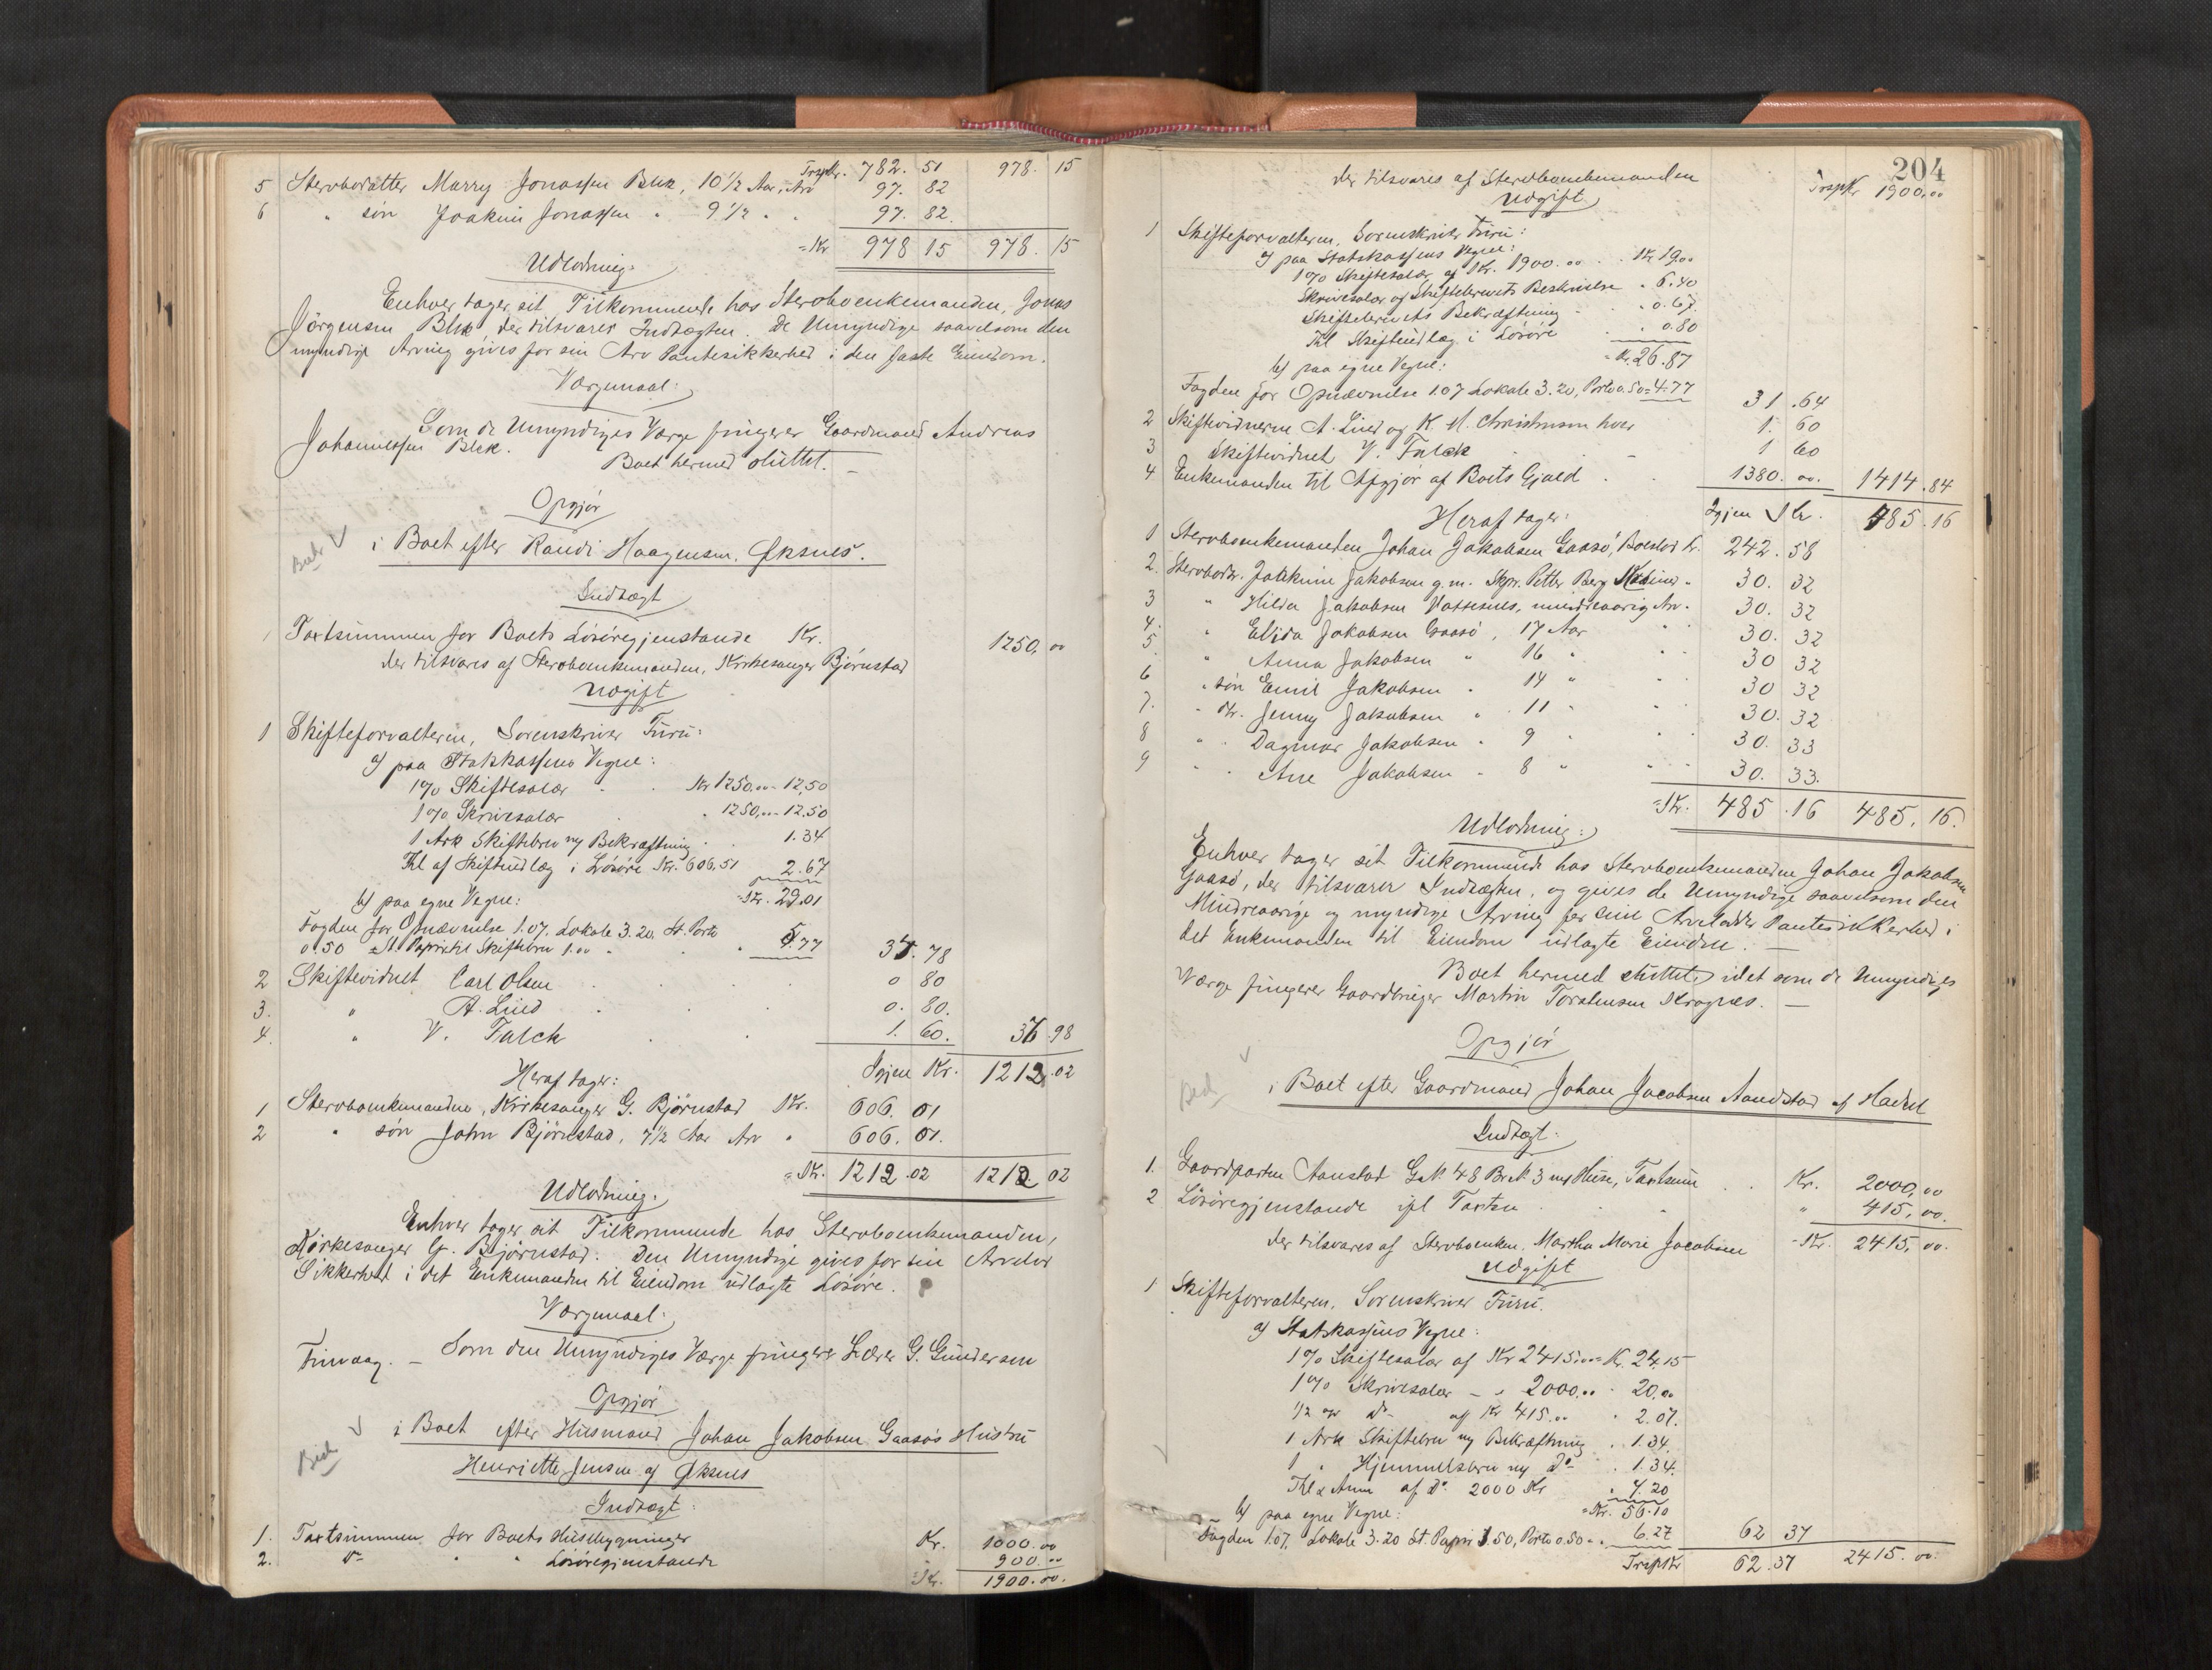 Trspkr. 782. 51 978. 15
5 Stervbodatter Marry Jonassen Blek, 10 1/2 Aar, Arv 97. 82
6 " søn Joakim Jonassen " 9 1/2 " " 97. 82.
= Kr 978 15 978. 15
Udlodning:
Enhver tager sit Tilkommende hos Stervboenkemanden, Jonas
Jørgensen Blek der tilsvarer Indtægten. De Umyndige saavelsom den
myndige Arving gives for sin Arv Pantesikkerhed i den faste Eiendom.
Værgemaal:
Som de Umyndiges Værge fungerer Gaardmand Andreas
Johannessen Blek.
Boet hermed sluttet. —
Opgjør
i Boet efter Randi Haagensen, Øksnes.
Indtægt
1 Taxtsummen for Boets Løsøregjenstande Kr. 1250,00
der tilsvares af Stervboenkemanden, Kirkesanger Bjørnstad
Udgift
1 Skifteforvalteren, Sorenskriver Furu:
a) paa Statskassens Vegne:
1 % Skiftesalær . . Kr 1250.00 - 12,50
1 % Skrivesalær . " 1250,00 - 12.50
1 Ark Skiftebrev og Bekræftning . . 1.34
Thl af Skifteudlæg i Løsøre Kr. 606,51 2.67
= Kr. 29.01
b) paa egne Vegne:
Fogden for Opnævnelse 1.07, Lokale 3.20, St. Porto
0.50 St. Papir til Skiftebrev 1.00 " . . " 5.77 34.78
2 Skiftevidnet Carl Olsen . . . 0 80
3. " A. Lind . . . 0. 80.
4. " V. Falck . . 1. 60. 37.98
Heraf tager: Igjen Kr. 1212.02
1 Stervboenkemanden, Kirkesanger G. Bjørnstad Kr. 606. 01
2 " søn John Bjørnstad, 7 1/2 Aar Arv " 606. 01.
= Kr. 1212.02 1212. 02
Udlodning.
Enhver tager sit Tilkommende hos Stervboenkemanden,
Kirkesanger G. Bjørnstad. Den Umyndige gives for sin Arvelod
Sikkerhed i det Enkemanden til Eiendom udlagte Løsøre.
Værgemaal:
Som den Umyndiges Værge fungerer Lærer G. Gundersen
Tinvaag. —
Opgjør
i Boet efter Husmand Johan Jakobsen Gaasøs Hustru
Henriette Jensen af Øksnes
Indtægt:
1. Taxtsummen for Boets Husebygninger Kr. 1000.00
2. Do " " Løsøregjenstande 900.00
= Kr. 1900.00.
204
der tilsvares af Stervboenkemanden Trspkr 1900,00
Udgift
1 Skifteforvalteren, Sorenskriver Furu:
a) paa Statskassens Vegne:
1 % Skiftesalær af Kr. 1900.00 . . Kr 19.00
Skrivesalær og Skiftebrevets Beskrivelse " 6.40
Skiftebrevets Bekræftning . . " 0.67.
Thl Skifteudlæg i Løsøre . . " 0.80
= Kr. 26.87
b) paa egne Vegne:
Fogden for Opnævnelse 1.07 Lokale 3.20, Porto 0.50 = 4.77 31.64
2 Skiftevidnerne A. Lind og K. M. Christensen hver 1. 60
3 Skiftevidnet V. Falck . — 1 60
4 Enkemanden til Afgjør af Boets Gjæld . . 1380.00. 1414.84
Heraf tager: Igjen Kr. 485.16
1 Stervboenkemanden Johan Jakobsen Gaasø, Boeslod Kr. 242.58
2. Stervbodtr. Jakkine Jakobsen g. m. Skpr. Petter Berg " 30. 32
3 " Hilda Jakobsen Vottesnes, mindreaarig Arv. 30. 32
4. " Elida Jakobsen Gaasø, 17 Aar " " 30. 32
5 " Anna Jakobsen " 16 " " " 30 32
6 " søn Emil Jakobsen " 14 " " 30 32
7. " dtr. Jenny Jakobsen " 11 " " 30. 32
8 " " Dagmar Jakobsen " 9 " " 30. 33
9 " " Ane Jakobsen " 8 " " 30. 33.
= Kr. 485.16 485. 16.
Udlodning:
Enhver tager sit Tilkommende hos Stervboenkemanden Johan Jakobsen
Gaasø, der tilsvarer Indtægten, og gives de Umyndige saavelsom den
Mindreaarige og myndige Arving for sine Arvelodder Pantesikkerhed i
det Enkemanden til Eiendom udlagte Eiendom. —
Boet hermed sluttet, idet som de Umyndiges
Værge fungerer Gaardbruger Martin Torstensen Kragnes. —
Opgjør
i Boet efter Gaardmand Johan Jacobsen Aandstad af Hadsel
Indtægt:
1. Gaardparten Aanstad G.N. 48 Br.N. 3 m/ Huse, Taxtsum . . Kr. 2000,00
2 Løsøregjenstande ifl Taxten . . " 415,00.
der tilsvares af Stervboenken, Martha Marie Jacobsen = Kr. 2415,00.
Udgift
1 Skifteforvalteren, Sorenskriver Furu.
a) Statskassens Vegne:
1 % Skiftesalær af Kr 2415,00 = Kr. 24.15
1 % Skrivesalær — " 2000.00 " 20.00
1/2 % Do af Kr 415.00 " 2.07.
1 Ark Skiftebrev og Bekræftning " 1.34.
1 " Hjemmelsbrev og Do " 1.34.
Thl & Anm af Do 2000 Kr " 7.20
= Kr. 56.10
b) paa egne Vegne:
Fogden 1.07, Lokale 3.20 St. Papir 1.50, Porto 0.50 = " 6.27 62 37
Trspkr 62.37 2415.00.